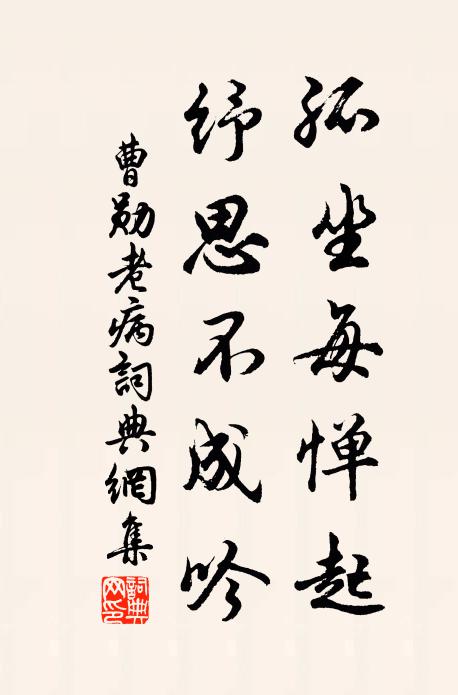 孤坐每惮起
纾思不成吟
曹勋老病詞典網集
詞典网印